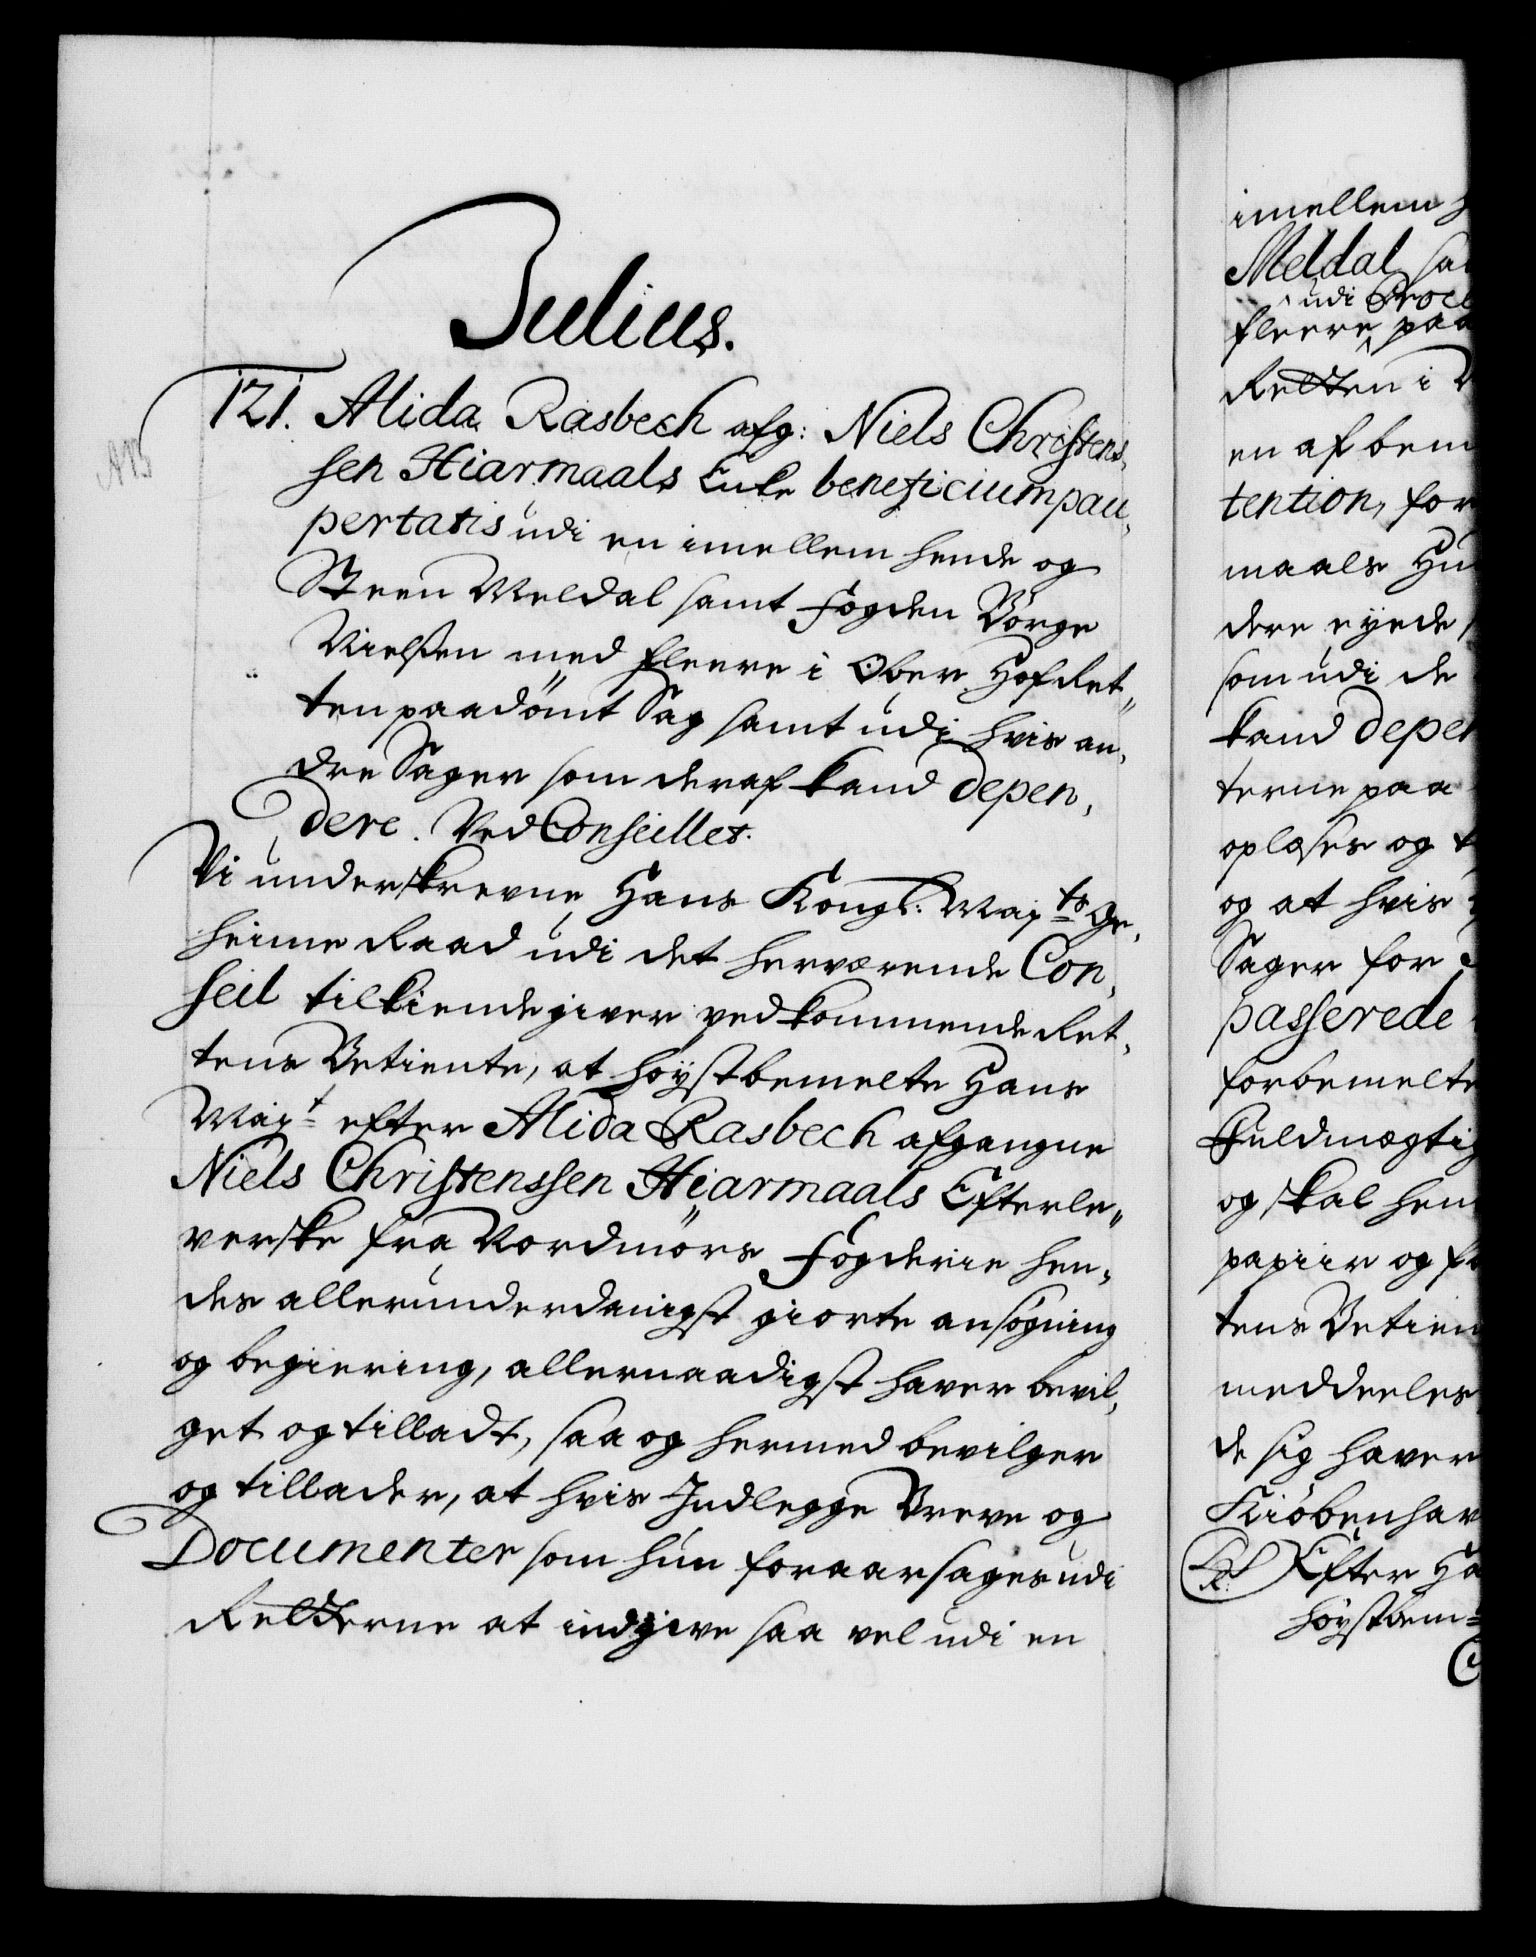 Julius.
121. Alida Rasbech afg: Niels Christens,
sen Hiarmaals Enke beneficium pau,
pertatis udi en imellem hende og
Steen Meldal samt fogden Börge
Nielsen med fleere i Ober Hof Ret„
ten paadömt Sag samt udi hvis an,
dre Sager som deraf kand depen,
dere. Ved Conseillet.
Vi underskrevne Hans Kongl: Majts Ge,
heime Raad udi det herværende Con,
seil tilkiendegiver vedkommende Ret,
tens Betiente, at höystbemelte Hans
Majt efter Alida Rasbech afgangne
Niels Christenssen Hiarmaals Efterle„
verske fra Nordmörs fogderie hen,
des allerunderdanigst giorte ansögning
og begiering, allernaadigst haver bevil,
get og tilladt, saa og hermed bevilger
og tillader, at hvis Indlegge Breve og
Documenter som hun foraarsages udi
Retterne at indgive saa vel udi en
imellem h
Meldal sa
udi Proce
fleere paa
Retten i
en af bem
tention, for
maals Hu
dere eyede
som udi de
kand depen
terne paa
oplæses og t
og at hvis
Sager for
passerede
forbemelte
Fuldmægtig
og skal hen
papiir og f
tens Betien
meddeeles
de sig haver
Kiöbenhav
Efter Ha
höystbem
C